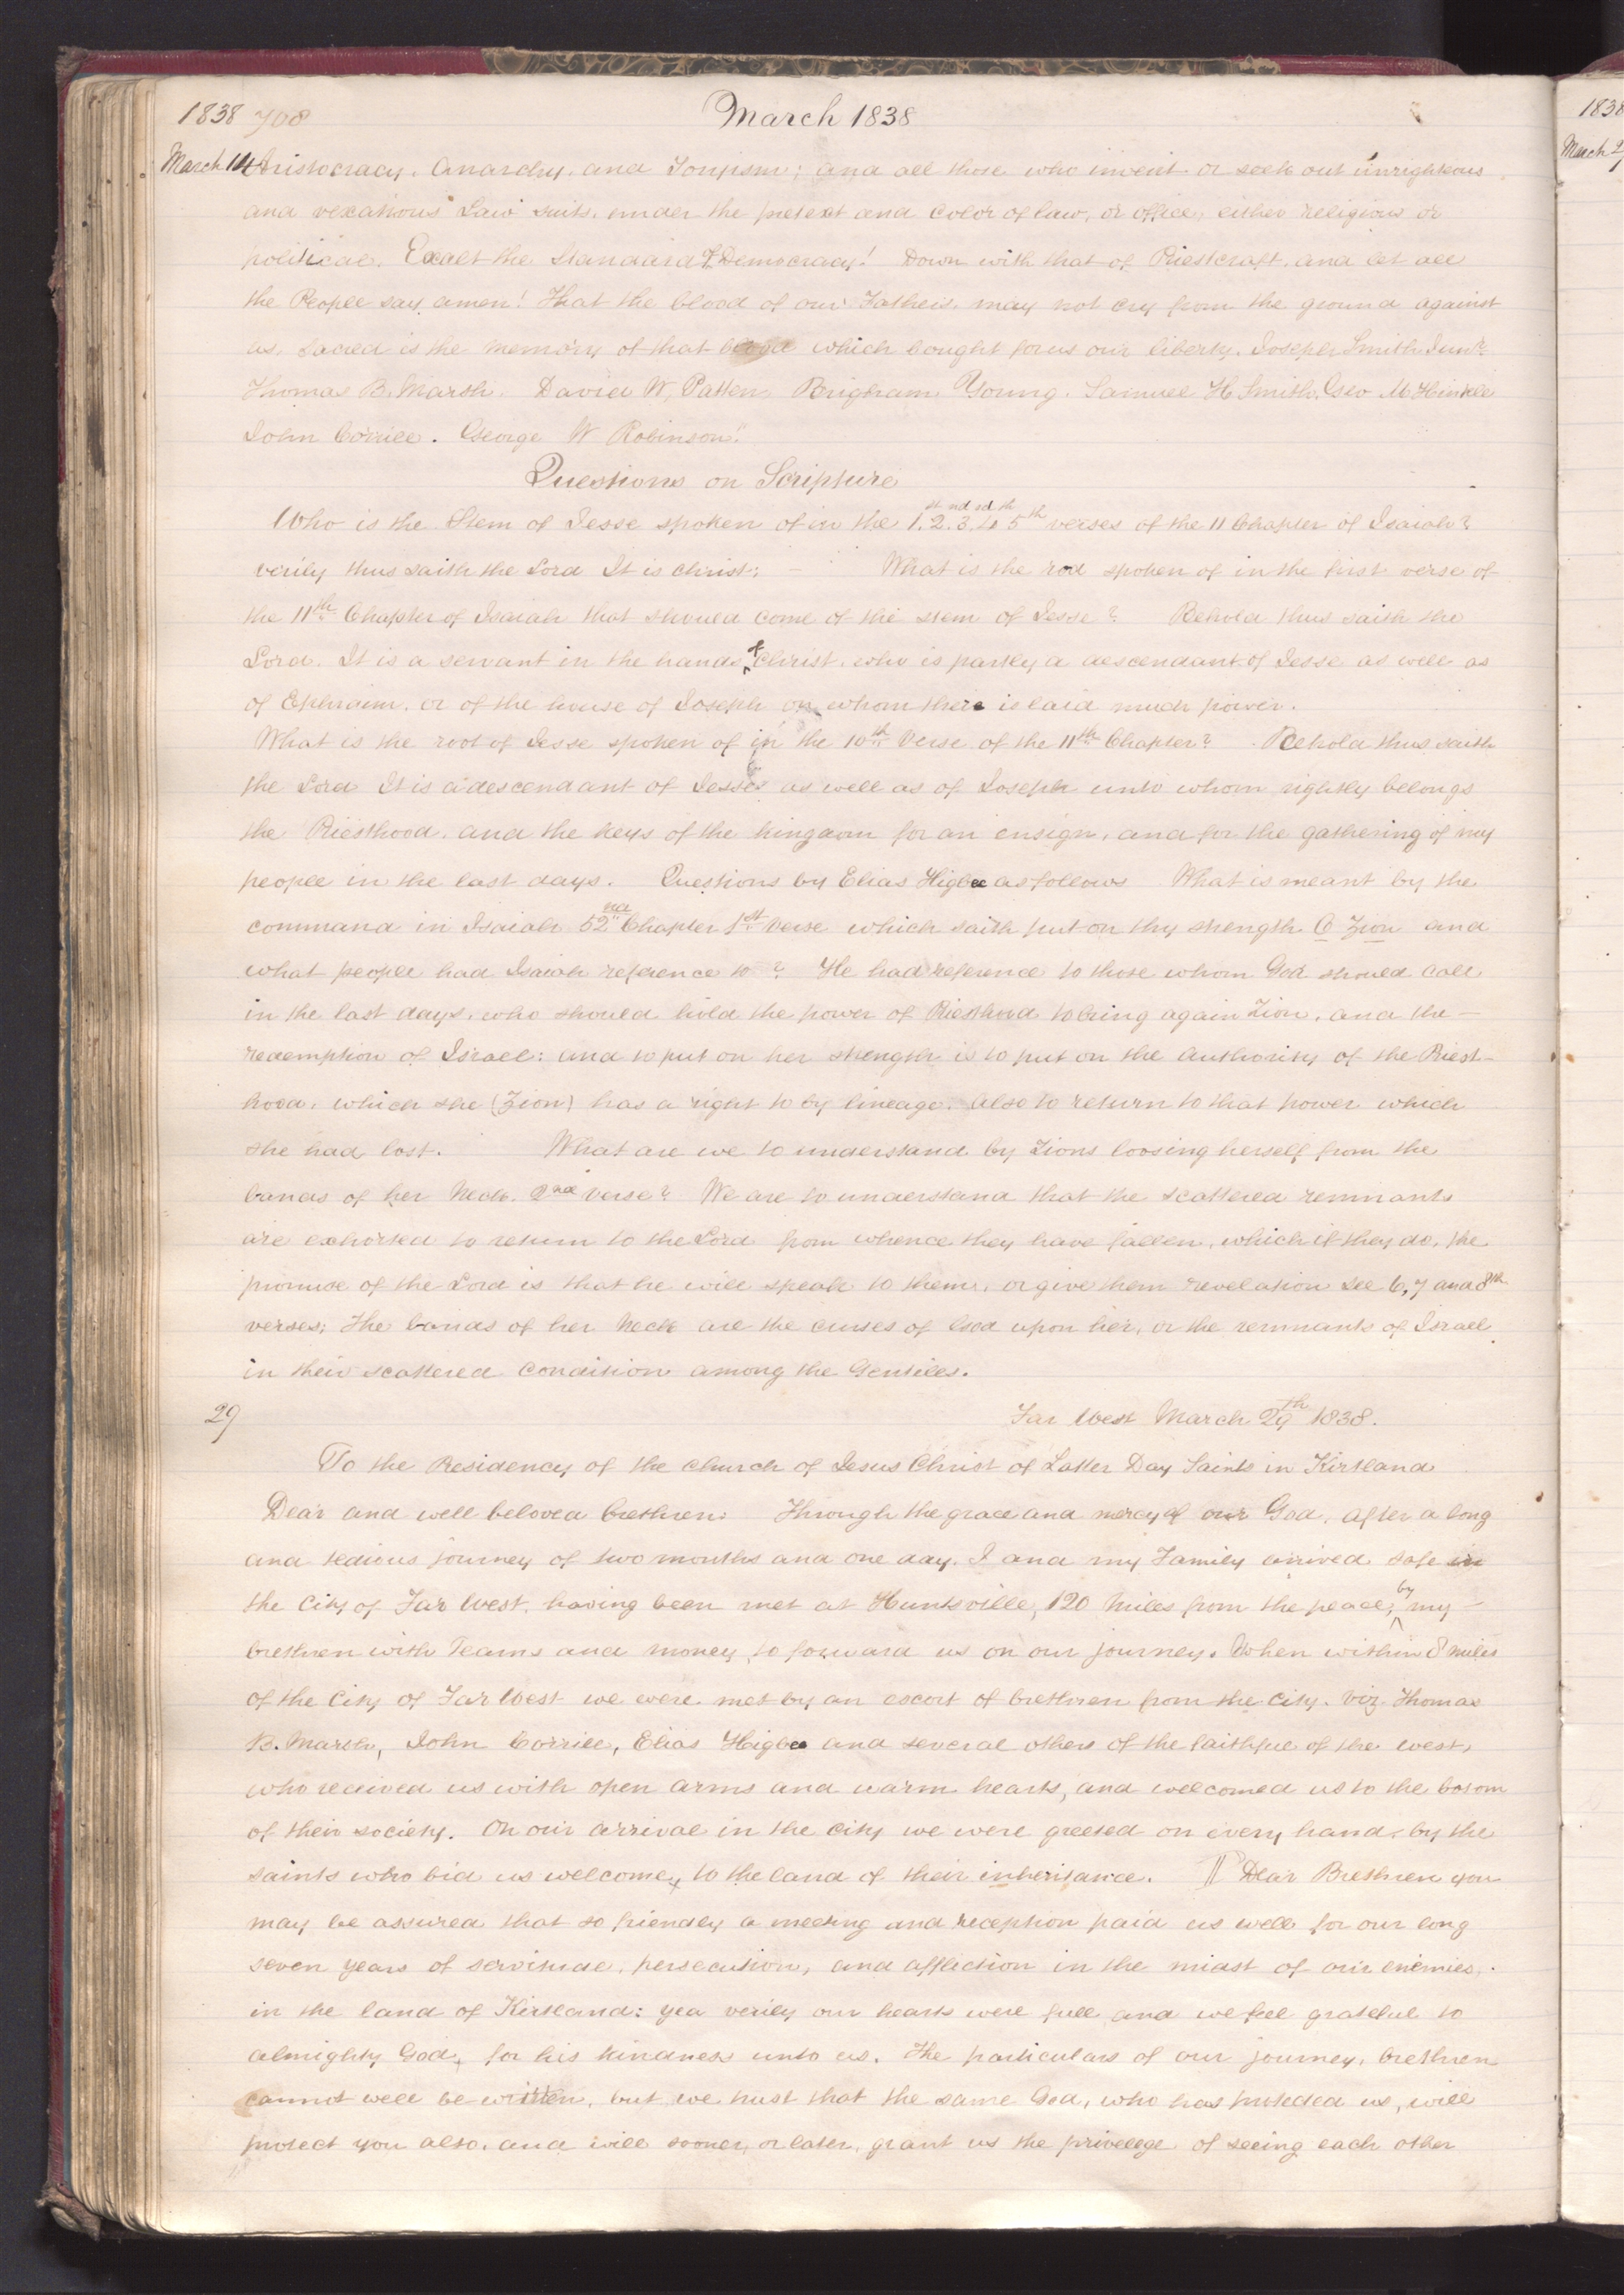 1838 708 March 1838
March 14 Aristocracy, Anarchy, and Toryism; and all those who invent or seek out unrighteous
and vexatious Law suits, under the pretext and color of law, or office, either religious or
political. Exalt the Standard of Democracy! Down with that of Priestcraft, and let all
the People say amen! That the blood of our Fathers, may not cry from the ground against
us. Sacred is the memory of that blood which bought for us our liberty. Joseph Smith Junr.
Thomas B. Marsh. David W. Patten Brigham Young. Samuel H. Smith, Geo M. Hinkle
John Corrill. George W Robinson."
Questions on Scripture
Who is the Stem of Jesse spoken of in the 1,st 2.nd 3.rd 4th 5th verses of the 11 Chapter of Isaiah?
verily thus saith the Lord It is christ; — What is the rod spoken of in the first verse of
the 11th Chapter of Isaiah that should come of the stem of Jesse? Behold thus saith the
Lord. It is a servant in the hands of Christ. who is partly a descendant of Jesse as well as
of Ephraim. or of the house of Joseph on whom there is laid much power.
What is the root of Jesse spoken of in the 10th Verse of the 11th Chapter? Behold thus saith
the Lord It is a descendant of Jesse as well as of Joseph unto whom rightly belongs
the Priesthood, and the keys of the kingdom for an ensign, and for the gathering of my
people in the last days. Questions by Elias Higbee as follows What is meant by the
command in Isaiah 52nd Chapter 1st verse which saith put on thy strength O Zion and
what people had Isaiah reference to? He had reference to those whom God should call
in the last days, who should hold the power of Priesthood to bring again Zion, and the —
redemption of Israel: and to put on her strength is to put on the authority of the Priest-
hood, which she (Zion) has a right to by lineage. Also to return to that power which
she had lost. What are we to understand by Zions loosing herself from the
bands of her neck. 2nd verse? We are to understand that the scattered remnants
are exhorted to return to the Lord from whence they have fallen, which if they do, the
promise of the Lord is that he will speak to them, or give them revelation see 6, 7 and 8th
verses; The bands of her neck are the curses of God upon her, or the remnants of Israel
in their scattered condition among the Gentiles.
29 Far West March 29th 1838.
To the Presidency of the church of Jesus Christ of Latter Day Saints in Kirtland
Dear and well beloved brethren: Through the grace and mercy of our God, after a long
and tedious journey of two months and one day. I and my Family arrived safe in
the City of Far West, having been met at Huntsville, 120 miles from the place, by my —
brethren with Teams and money, to forward us on our journey. When within 8 miles
of the City of Far West we were met by an escort of brethren from the city. viz. Thomas
B. Marsh, John Corrill, Elias Higbee and several others of the faithful of the west,
who received us with open arms and warm hearts, and welcomed us to the bosom
of their society. On our arrival in the city we were greeted on every hand by the
saints who bid us welcome, to the land of their inheritance. ¶ Dear Brethren you
may be assured that so friendly a meeting and reception paid us well for our long
seven years of servitude, persecution, and affliction in the midst of our enemies,
in the land of Kirtland: yea verily our hearts were full and we feel grateful to
almighty God, for his kindness unto us. The particulars of our journey, brethren
cannot well be written, but we trust that the same God, who has protected us, will
protect you also, and will sooner, or later, grant us the privelege of seeing each other
1838
March 29